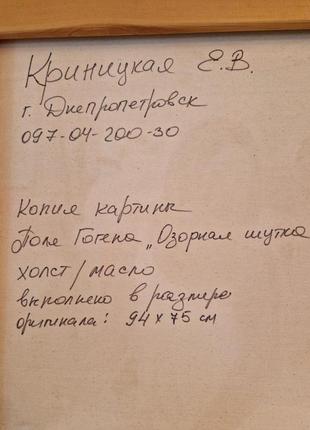 Криницкая Е.В.
г. Днепропетровск
097-04-200-30
Копия картины
Поля Гогена „Озорная шутка
холст/масло
выполнено в размере
оригинала: 94 х 75 см